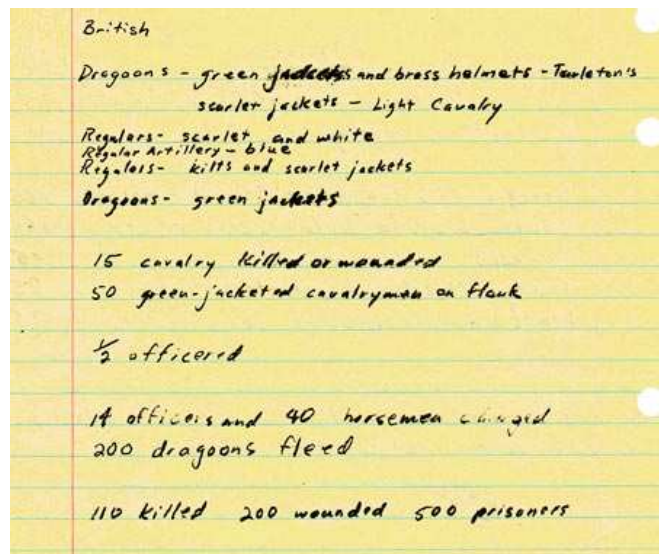 British
Dragoons - green jackets and brass helmets - Tarleton's
scarlet jackets - Light Cavalry
Regulars - scarlet and white
Regular Artillery - blue
Regulars - kilts and scarlet jackets
Dragoons - green jackets
15 cavalry killed or wounded
50 green-jacketed cavalrymen on flank
1/2 officered
14 officers and 40 horsemen charged
200 dragoons fleed
110 killed 200 wounded 500 prisoners